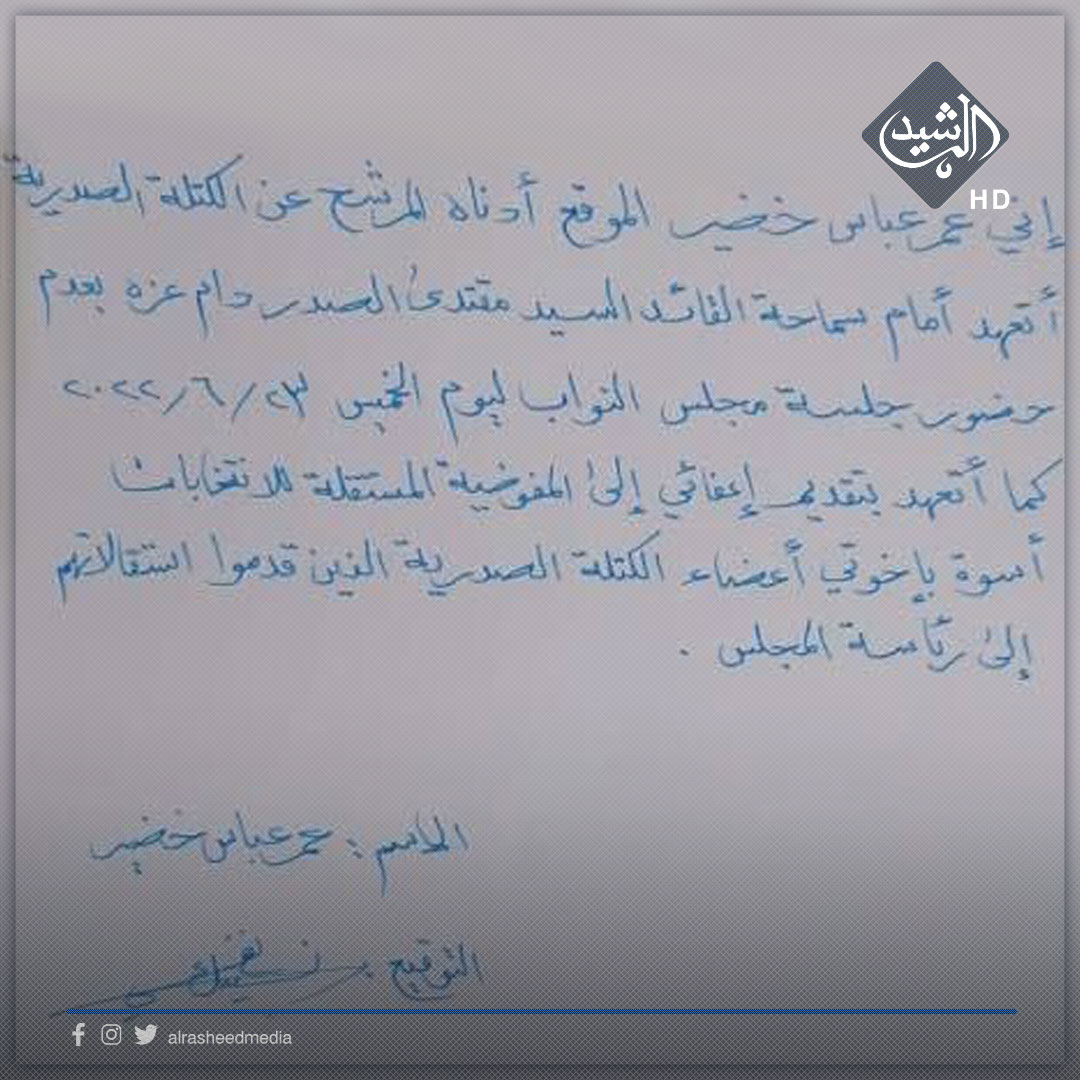 الرشيد
HD
إني عمر عباس خضير الموقع أدناه المرشح عن الكتلة الصدرية
أتعهد أمام سماحة القائد السيد مقتدى الصدر دام عزه بعدم
حضور جلسة مجلس النواب ليوم الخميس ٢٣/٦/٢٠٢٢
كما أتعهد بتقديم إعفائي إلى المفوضية المستقلة للانتخابات
أسوة بإخوتي أعضاء الكتلة الصدرية الذين قدموا استقالاتهم
إلى رئاسة المجلس .
الاسم : عمر عباس خضير
التوقيع
alrasheedmedia